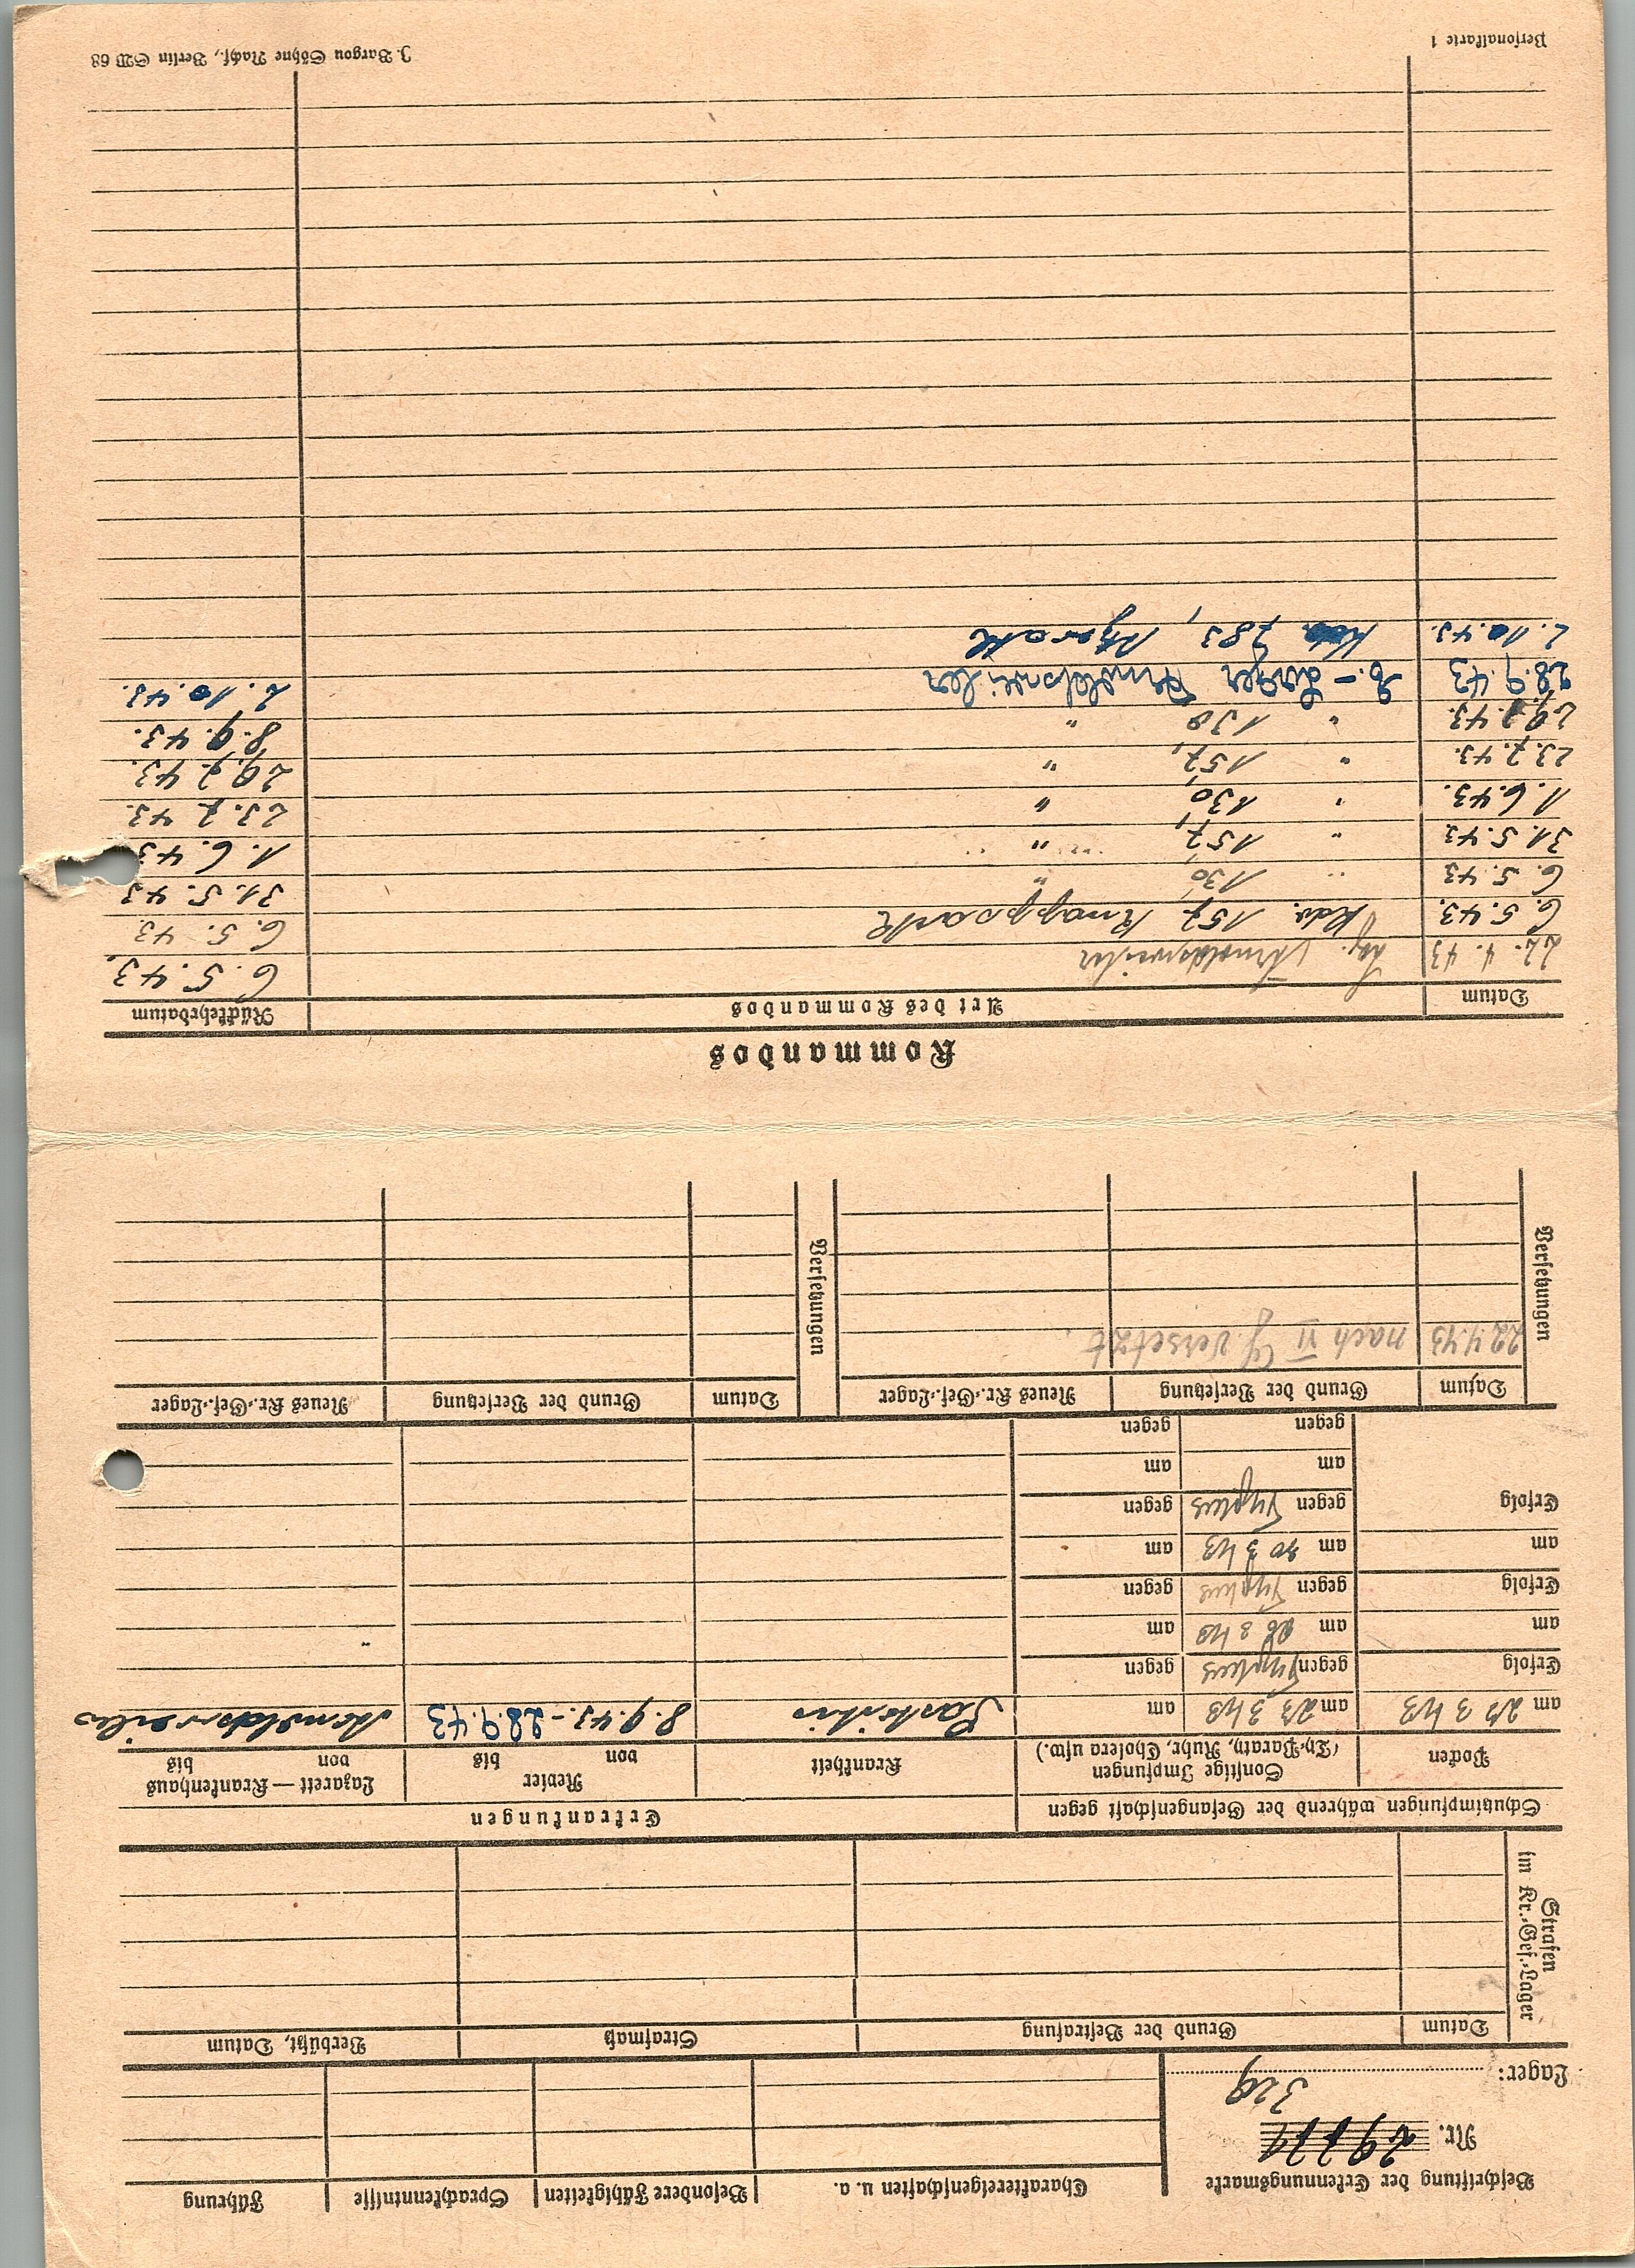 Beschriftung der Erkennungsmarke
Nr. 29771
Lager: 326
Charaktereigenschaften u. a. Besondere Fähigkeiten Sprachkenntnisse Führung
Strafen im Kr.-Gef.-Lager
Datum Grund der Bestrafung Strafmaß Verbüßt, Datum
Schutzimpfungen während der Gefangenschaft gegen Erkrankungen
Pocken Sonstige Impfungen (Ty.-Paraty, Ruhr, Cholera usw.) Krankheit Revier von bis Lazarett — Krankenhaus von bis
am 23 3 43 am 23 3 43 am 8.9.43.-28.9.43 Arnoldsweiler
Erfolg gegen Typhus gegen
am am 26 3 43 am
Erfolg gegen Typhus gegen
am am 30 3 43 am
Erfolg gegen Typhus gegen
am am
gegen gegen
Versetzungen Datum Grund der Versetzung Neues Kr.-Gef.-Lager Versetzungen Datum Grund der Versetzung Neues Kr.-Gef.-Lager
22 4 43 nach VI G versetzt.
Kommandos
Datum Art des Kommandos Rückkehrdatum
22. 4. 43 Lag. Arnoldsweiler 6. 5. 43.
6. 5. 43. Kdo. 157 Knappsack 6. 5. 43
6. 5. 43 " 130, " 31. 5. 43
31. 5. 43 " 157, " 1. 6. 43
1. 6. 43. " 130, " 23. 7. 43.
23. 7. 43. " 157, " 43.
43. " 130 " 8. 9. 43.
28. 9. 43 Arnoldsweiler 2. 10. 43.
2. 10. 43. 783,
Personalkarte 1 J. Bargou Söhne Nachf., Berlin SW 68